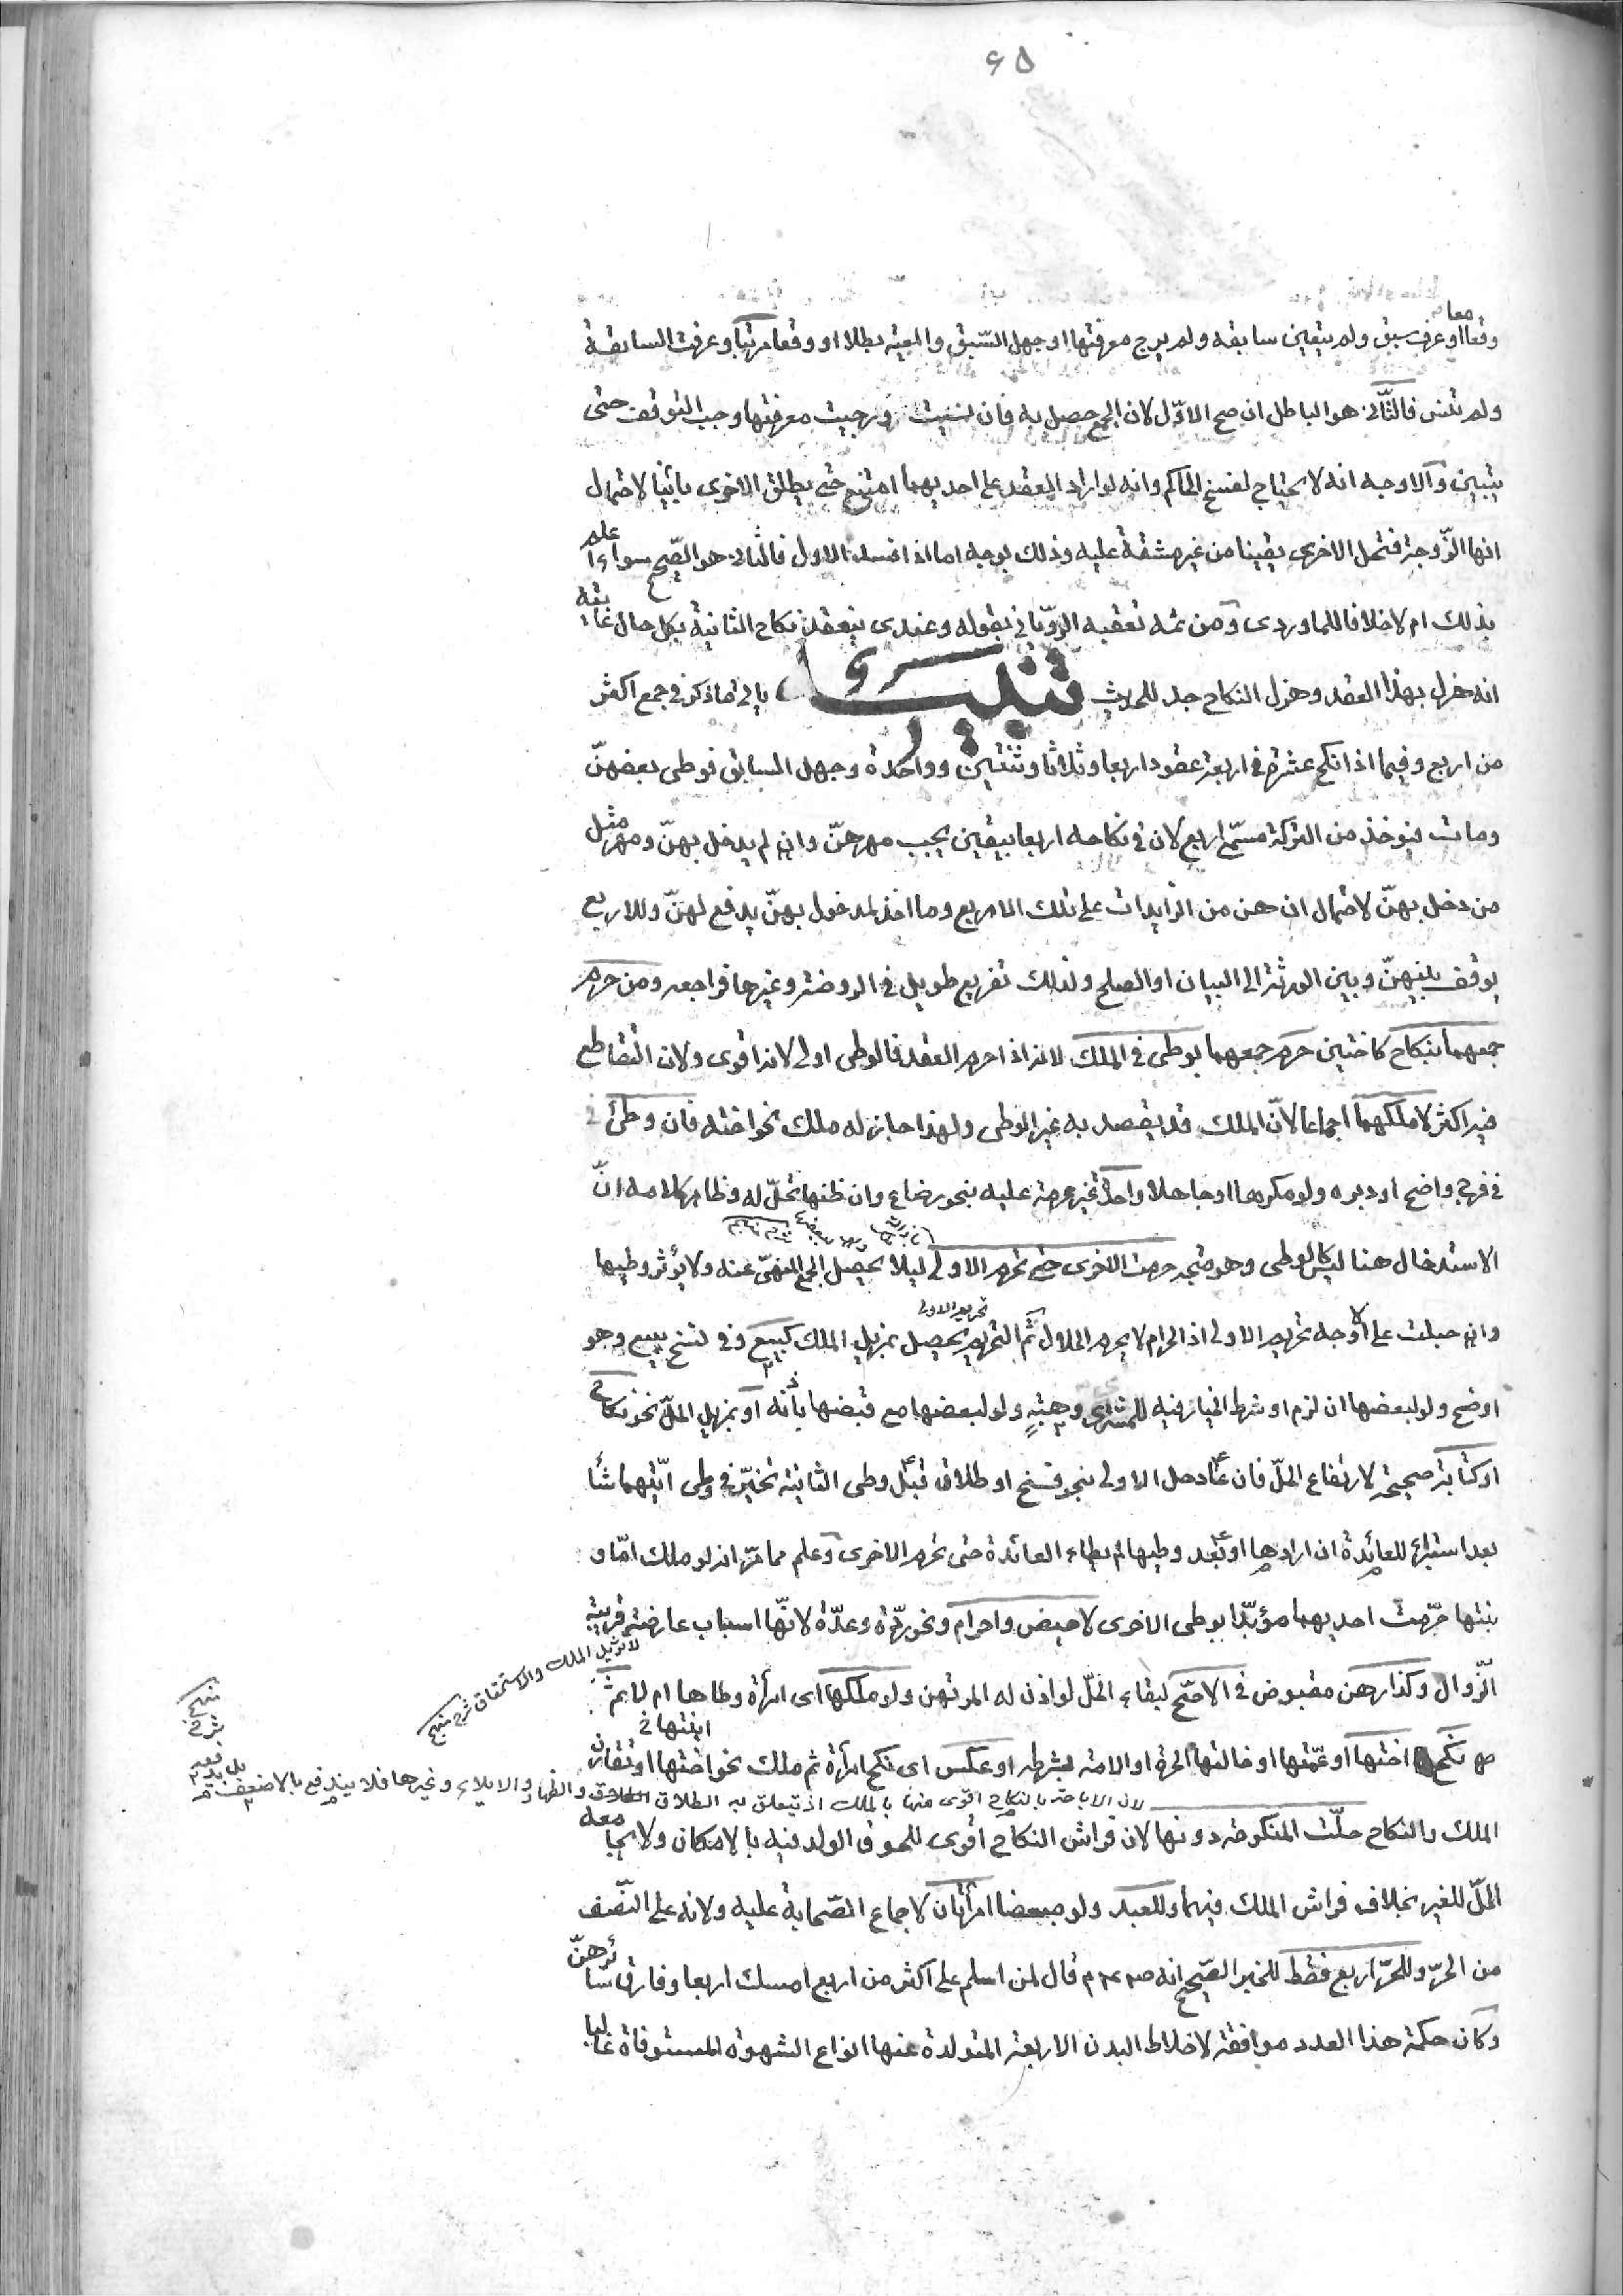 ٦٥
معا
وقعا او عرف سبق ولم يتعين سابقه ولم يرج معرفتها او جهل السّبق والمعيّه بطلا او وقعا مرتّبا وعرفت السابقة
ولم تنس فالثّانى هو الباطل ان صح الاوّل لان الجمع حصل به فان نسيت ورجيت معرفتها وجب التوقف حتى
يتبين والاوجه انه لا يحتاج لفسخ الحاكم وانه لو اراد العقد على احديهما امتنع حتى يطلق الاخرى بائنا لاحتمال
انها الزّوجة فتحل الاخرى يقينا من غير مشقة عليه وذلك يوجه اما اذا فسد الاول فالثانى هو الصّحيح سواء أعلم
بذلك ام لا خلافا للماوردى ومن ثمه تعقبه الرّويّانى بقوله وعندى ينعقد نكاح الثانية بكل حال غايته
انه هزل بهذا العقد وهزل النكاح جد للحديث تنبيه ياتى ما ذكر فى جمع اكثر
من اربع وفيما اذا نكح عشرة فى اربعة عقود اربعا وثلاثا وثنتين وواحدة وجهل السابق فوطى بعضهنّ
ومات فيوخذ من التركة مسمّى اربع لان فى نكاحه اربعا بيقين يجب مهرهنّ وان لم يدخل بهنّ ومهر مثل
من دخل بهنّ لاحتمال ان هن من الزايدات على تلك الاربع وما اخذ لمدخول بهنّ يدفع لهنّ وللاربع
يوقف بينهنّ وبين الورثة الى البيان او الصلح ولذلك تفريع طويل فى الروضة وغيرها فراجعه ومن حرم
جمعهما بنكاح كاختين حرم جمعهما بوطى فى الملك لانه اذا حرم العقد فالوطى اولى لانه اقوى ولان التقاطع
فيه اكثر لا ملكهما اجماعا لانّ الملك قد يقصد به غير الوطى ولهذا جاز له ملك نحو اخته فان وطئ
فى فرج واضح او دبره ولو مكرها او جاهلا واحدة غير محرمة عليه بنحو رضاع وان ظنها تحلّ له وظاهر كلامه انّ
الاستدخال هنا ليس كالوطى وهو متجه حرمت الاخرى حتى تحرم الاولى ليلا يحصل الجمع المنهىّ عنه ولا يؤثر وطيها
تحريم الاولى
وان حبلت على الاوجه تحريم الاولى اذ الحرام لا يحرم الحلال ثمّ التحريم يحصل بمزيل الملك كبيع وفى نسخ ببيع وهو
اوضح ولو لبعضها ان لزم او شرط الخيار فيه للمشترى وهبةٍ ولو لبعضها مع قبضها باذنه او بمزيل الحلّ نحو نكاح
او كتابة صحيحة لارتفاع الحلّ فان عاد حل الاولى بنحو فسخ او طلاق قبل وطى الثانية تخيّر فى وطى ايّتهما شأ
بعد استبراء للعائدة ان ارادها او بعد وطيها لم يطاء العائدة حتى تحرم الاخرى وعلم مما مرّ انه لو ملك امّا و
بنتها حرّمت احديهما مؤبّدا بوطى الاخرى لا حيض واحرام ونحو ردّة وعدّة لانّها اسباب عارضة قريبة
لا تزيل الملك والاستحقاق شرح منهج
الزّوال وكذا رهن مقبوض فى الاصّح لبقاء الحلّ لو اذن له المرتهن ولو ملكها اى امرأة وطاها ام لا ثمّ
ابنتها
نكح اختها او عمّتها او خالتها الحرة او الامة بشرطه او عكس اى نكح امرأة ثم ملك نحو اختها او تقارن
لان الاباحة بالنكاح اقوى منها بالملك اذ يتعلق به الطلاق والظهار والايلاء وغيرها فلا يندفع بالاضعف بل يدفعه
شرح منهج
الملك والنكاح حلّت المنكوحة دونها لان فراش النكاح اقوى للحوق الولد فيه بالامكان ولا يجامعه
الحلّ للغير بخلاف فراش الملك فيهما وللعبد ولو مبعضا امرأتان لاجماع الصّحابة عليه ولانه على النّصف
من الحرّ وللحرّ اربع فقط للخبر الصّحيح انه ص م قال لمن اسلم على اكثر من اربع امسك اربعا وفارق سائرهنّ
وكان حكمة هذا العدد موافقته لاخلاط البدن الاربعة المتولدة عنها انواع الشهوة المستوفاة غالبا